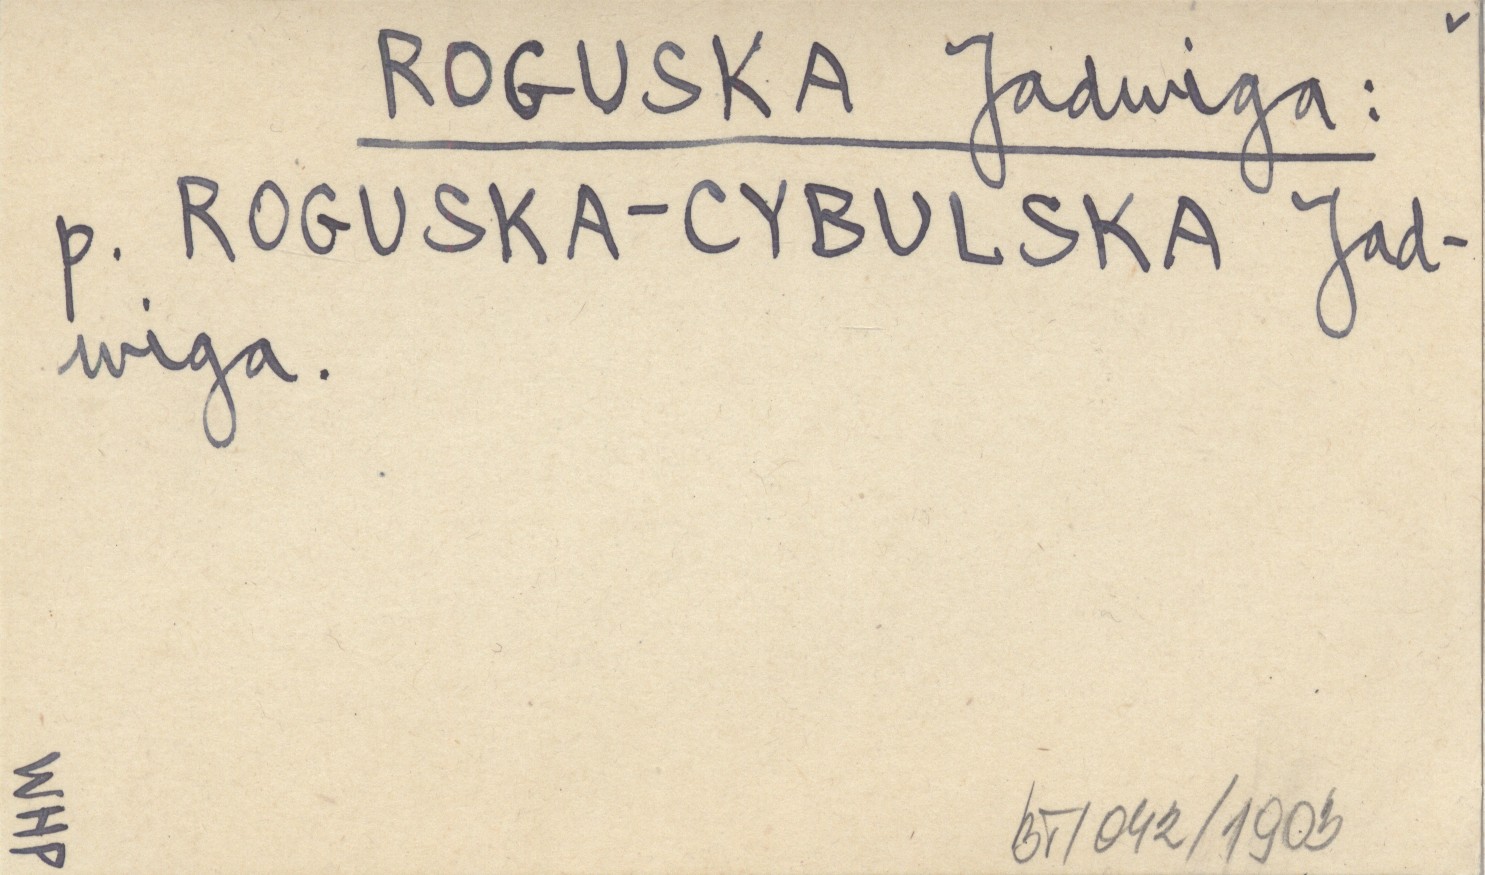 ROGUSKA Jadwiga:
p. ROGUSKA-CYBULSKA Jad-
wiga.
WHP
BT/042/1903